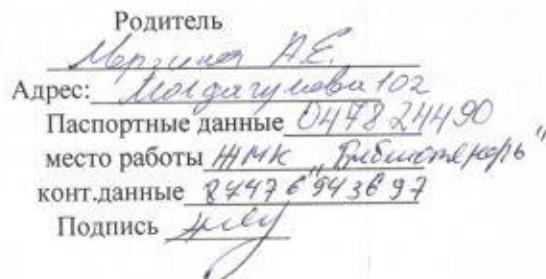 Родитель
Мерзина А.Е.
Адрес: Молдагулова 102
Паспортные данные 047824490
место работы ЖМК "Библиотекарь"
конт.данные 87476943697
Подпись